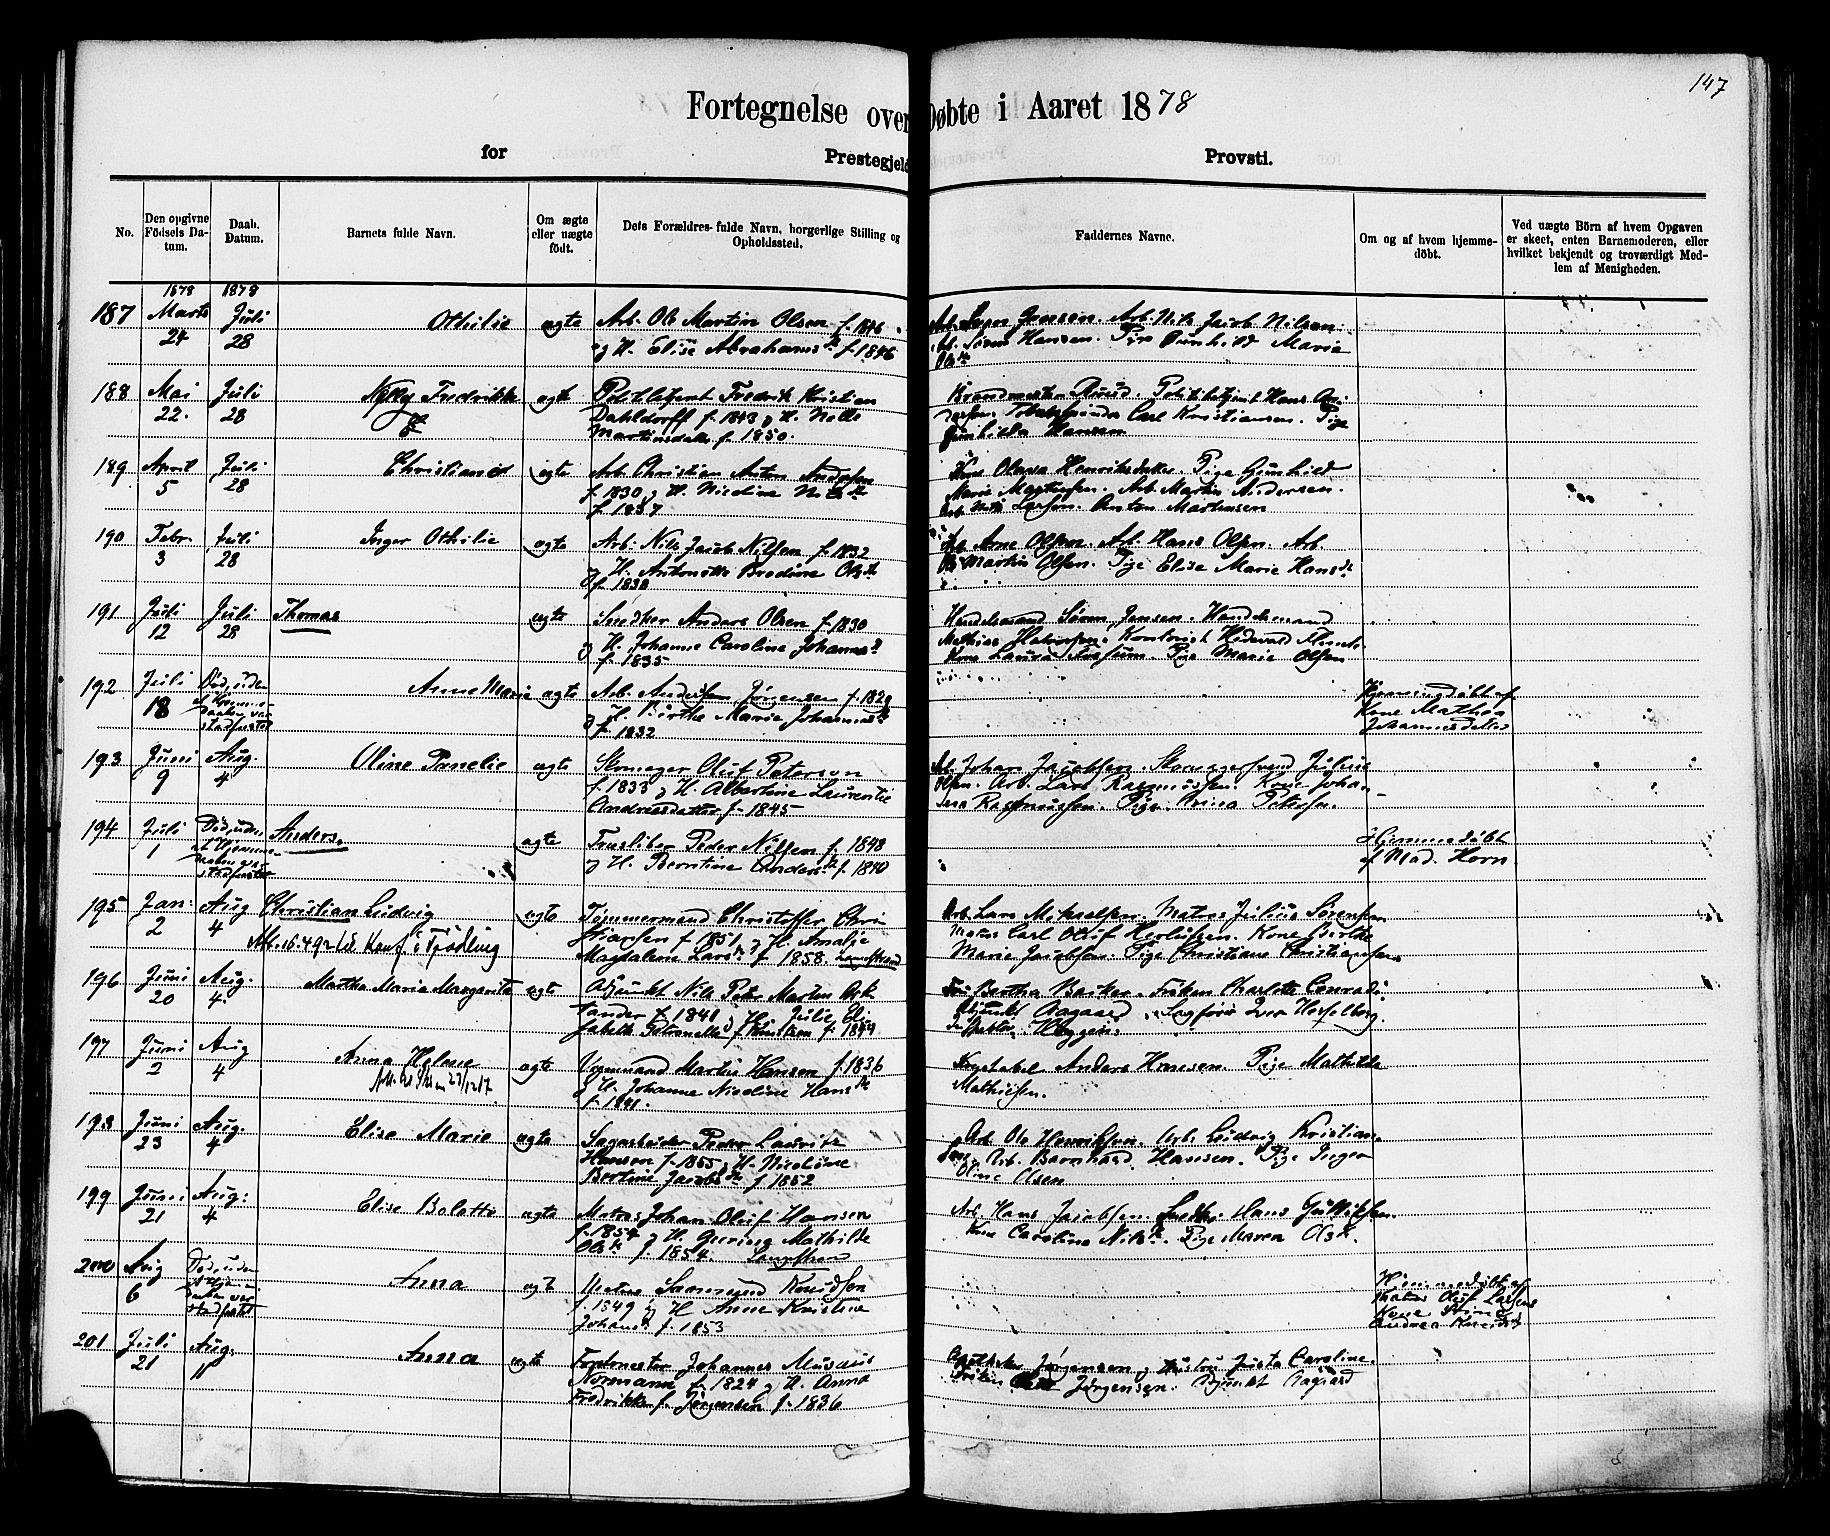 147
Fortegnelse over Døbte i Aaret 1878
for Prestegjeld Provsti.
No.
Den opgivne Födsels Datum.
Daab. Datum.
Barnets fulde Navn.
Om ægte eller uægte födt.
Dets Forældres fulde Navn, borgerlige Stilling og Opholdssted.
Faddernes Navne.
Om og af hvem hjemmedöbt.
Ved uægte Börn af hvem Opgaven er skeet, enten Barnemoderen, eller hvilket bekjendt og troværdigt Medlem af Menigheden.
1878 1878
187 Marts 24 Juli 28 Othilie ægte Arb. Ole Martin Olsen f. 1846
og H. Elise Abrahamsdtr f. 1846
Arb. Sven Jensen. Arb. Nils Jacob Nilsen.
Arb. Søren Hansen. Pige Gunhild Marie
Olsdtr
188 Mai 22. Juli 28 Nelly Fredrikke ægte Politibetjent Fredrik Kristian
Dahldorff f. 1843 og H. Nelle
Martinsdatter f. 1850.
Brandmester Ruud. Politibetjent Hans An-
dersen. Tobakspinder Carl Kristiansen. Pige
Gunhilda Hansen
189 April 5 Juli 28 Christian ægte Arb. Christian Anton Andersen
f. 1830 og H. Nicoline Nilsdtr
f. 1837
Kone Olava Henriksdatter. Pige Gunhild
Marie Mathisen. Arb. Martin Andersen.
Arb. Nils Larsen. Anton Mathisen
190 Febr. 3 Juli 28 Inger Othilie ægte Arb. Nils Jacob Nilsen f. 1832
og H. Antonette Bredine Olsdtr
f. 1838
Arb. Arne Olsen. Arb. Hans Olsen. Arb.
Ole Martin Olsen. Pige Elise Marie Hansdtr
191 Juli 12 Juli 28 Thomas ægte Snedker Anders Olsen f. 1830
og H. Johanne Caroline Johannesdtr
f. 1835
Handelsmand Søren Jensen. Handelsmand
Mathias Halvorsen. Kontorist
Kone Laura Fossum. Pige Marie Olsen
192 Juli 18 Død, uden at Hjemmedaaben var stadfæstet Anne Marie ægte Arb. Andreas Jørgensen f. 1829
og H. Birthe Marie Johannesdtr
f. 1832
Hjemmedøbt af
Kone Mathea
Johannesdatter
193 Juni 9 Aug. 4 Oline Pauelie ægte Skomager Oluf Peterson
f. 1833 og H. Albertine Laurentie
Andreasdatter f. 1845
Arb. Johan Jacobsen. Skomagersvend Julius
Olsen. Arb. Lars Rasmussen. Kone Johan-
ne Rasmussen. Pige Petersen.
194 Juli 1 Død, uden at Hjemmedaaben var stadfæstet Anders. ægte Peder Nilsen f. 1848
og H. Berntine Andersdtr f. 1840
Hjemmedøbt
af Mad. Horn
195 Jan: 2 Aug 4 Christian Ludvig ægte Tømmermand Christoffer Chri-
stiansen f. 1851 og H. Amalie
Magdalene Larsdtr f. 1858. Langestrand
Arb. Lars Mikaelsen. Matros Julius Sørensen
Matros Carl Oluf Herlufsen. Kone Birthe
Marie Jacobsen. Pige Christiane Christiansen.
196 Juni 20 Aug. 4 Martha Maria Margareta ægte Adjunkt Nils Peter Martin Ask-
lander f. 1841 og H. Julie Eli-
sabeth Petronelle f. Knudsen f. 1849
Fru Bertha Barker. Frøken Charlotte Conradi.
Adjunkt Aagaard. Sagfører Iver Hesselberg.
Inspektør
197 Juni 2 Aug 4 Anna Helene ægte Vognmand Martin Hansen f. 1836
og H. Johanne Nicoline Hansdtr
f. 1841.
Konstabel Anders Hansen. Pige Mathilde
Mathisen.
198 Juni 23 Aug. 4 Elise Marie ægte Sagarbeider Peder Lauritz
Hansen f. 1855 og H. Nicoline
Bertine Jacobsdtr f. 1852
Arb. Ole Henriksen. Arb. Ludvig Kristian-
sen. Arb. Bernhard Hansen. Pige Inger
Oline Olsen
199 Juni 21 Aug: 4 Elise Bolette ægte Matros Johan Oluf Hansen
f. 1854 og H. Mathilde
Olsdtr f. 1854. Langestrand
Arb. Hans Jacobsen. Snedker Hans Gulliksen.
Kone Carolina Nilsdtr. Pige Maren Ask.
200 Aug 6 Død, uden at Hjemmedaaben var stadfæstet Anna ægte Matros Knudsen
f. 1849 og H. Anne Kristine
Johansdtr f. 1853
Hjemmedøbt af
Matros Oluf Larsens
Kone Stine
Andrea Knudsdtr
201 Juli 21 Aug. 11 Anna ægte Johannes Musæus
Normann f. 1824 og H. Anna
Fredrikke f. Jørgensen f. 1836
Apotheker Jørgensen og Hustru Justa Caroline.
Frøken Jørgensen. Adjunkt Aagaard